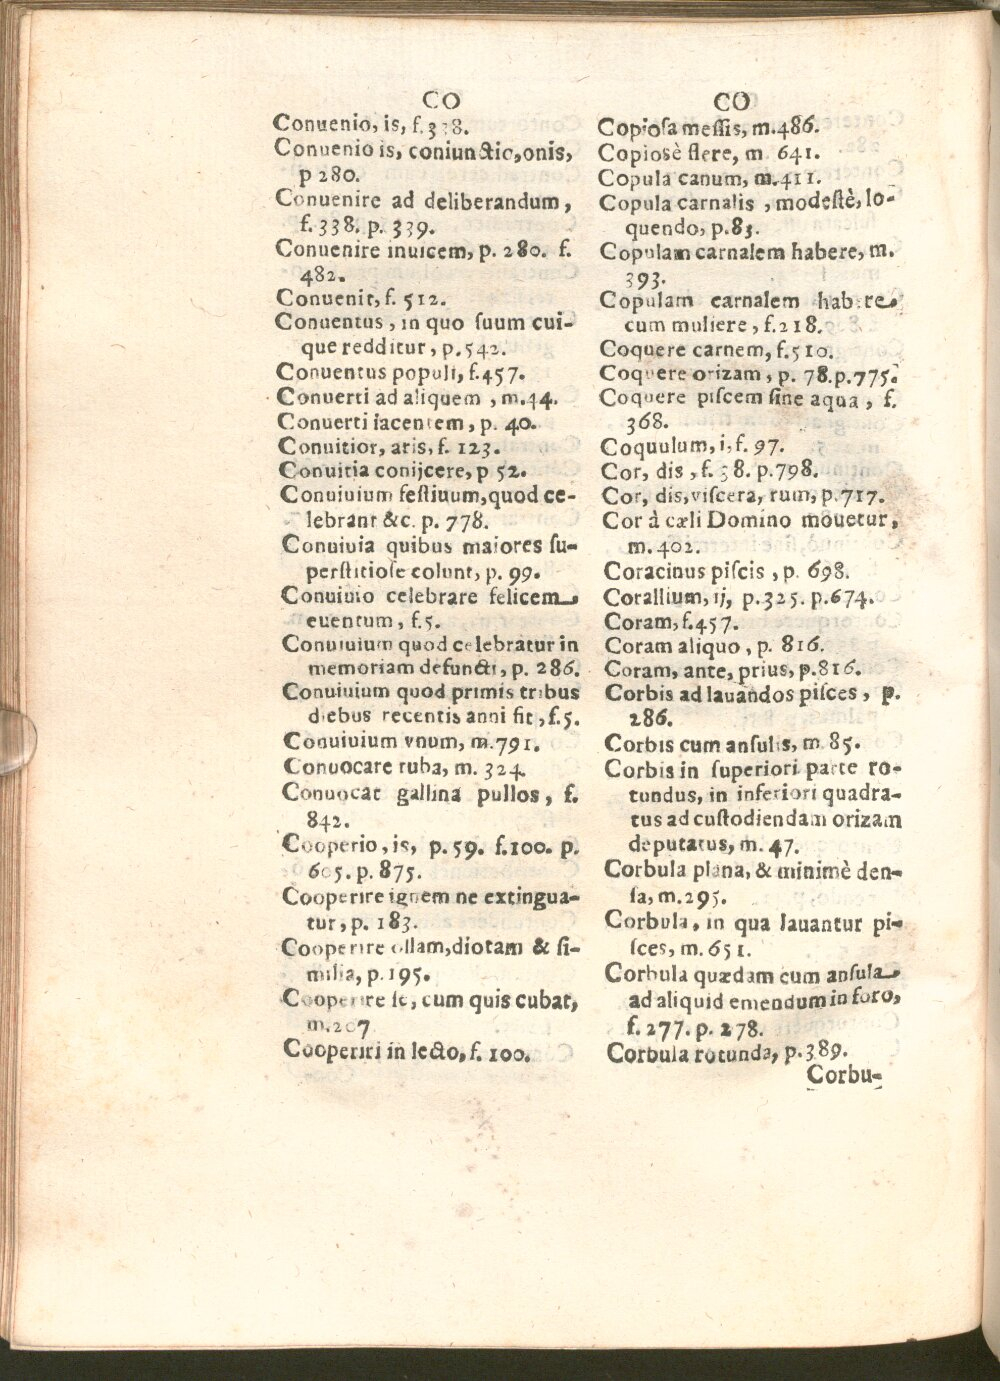 CO
Conuenio, is, f.338.
Conuenio is, coniunctio,onis,
p 280.
Conuenire ad deliberandum,
f.338. p. 339.
Conuenire inuicem, p. 280. f.
482.
Conuenit, f. 512.
Conuentus, in quo ſuum cui-
que redditur, p.542.
Conuentus populi, f.457.
Conuerti ad aliquem, m.44.
Conuerti iacentem, p. 40.
Conuitior, aris, f. 123.
Conuitia conijcere, p 52.
Conuiuium feſtiuum,quod ce-
lebrant &c. p. 778.
Conuiuia quibus maiores ſu-
perſtitioſe colunt, p. 99.
Conuiuio celebrare felicem
euentum, f.5.
Conuiuium quod celebratur in
memoriam defuncti, p. 286.
Conuiuium quod primis tribus
diebus recentis anni fit, f.5.
Conuiuium vnum, m.791.
Conuocare tuba, m. 324.
Conuocat gallina pullos, f.
842.
Cooperio, is, p. 59. f.100. p.
605. p. 875.
Cooperire ignem ne extingua-
tur, p. 183.
Cooperire ollam,diotam & ſi-
milia, p.195.
Cooperire ſe, cum quis cubat,
m.207
Cooperiri in lecto, f. 100.
CO
Copioſa meſſis, m.486.
Copioſè flere, m. 641.
Copula canum, m.411.
Copula carnalis, modeſtè, lo-
quendo, p.83.
Copulam carnalem habere, m.
393.
Copulam carnalem habere
cum muliere, f.218.
Coquere carnem, f.510.
Coquere orizam, p. 78.p.775.
Coquere piſcem ſine aqua, f.
368.
Coquulum, i, f. 97.
Cor, dis, f. 38. p.798.
Cor, dis, viſcera, rum, p.717.
Cor à cæli Domino mouetur,
m. 402.
Coracinus piſcis, p. 698.
Corallium, ij, p.325. p.674.
Coram, f.457.
Coram aliquo, p. 816.
Coram, ante, prius, p.816.
Corbis ad lauandos piſces, p.
286.
Corbis cum anſulis, m. 85.
Corbis in ſuperiori parte ro-
tundus, in inferiori quadra-
tus ad cuſtodiendam orizam
deputatus, m. 47.
Corbula plana, & minimè den-
ſa, m.295.
Corbula, in qua lauantur pi-
ſces, m. 651.
Corbula quædam cum anſula
ad aliquid emendum in foro,
f. 277. p. 278.
Corbula rotunda, p.389.
Corbu-